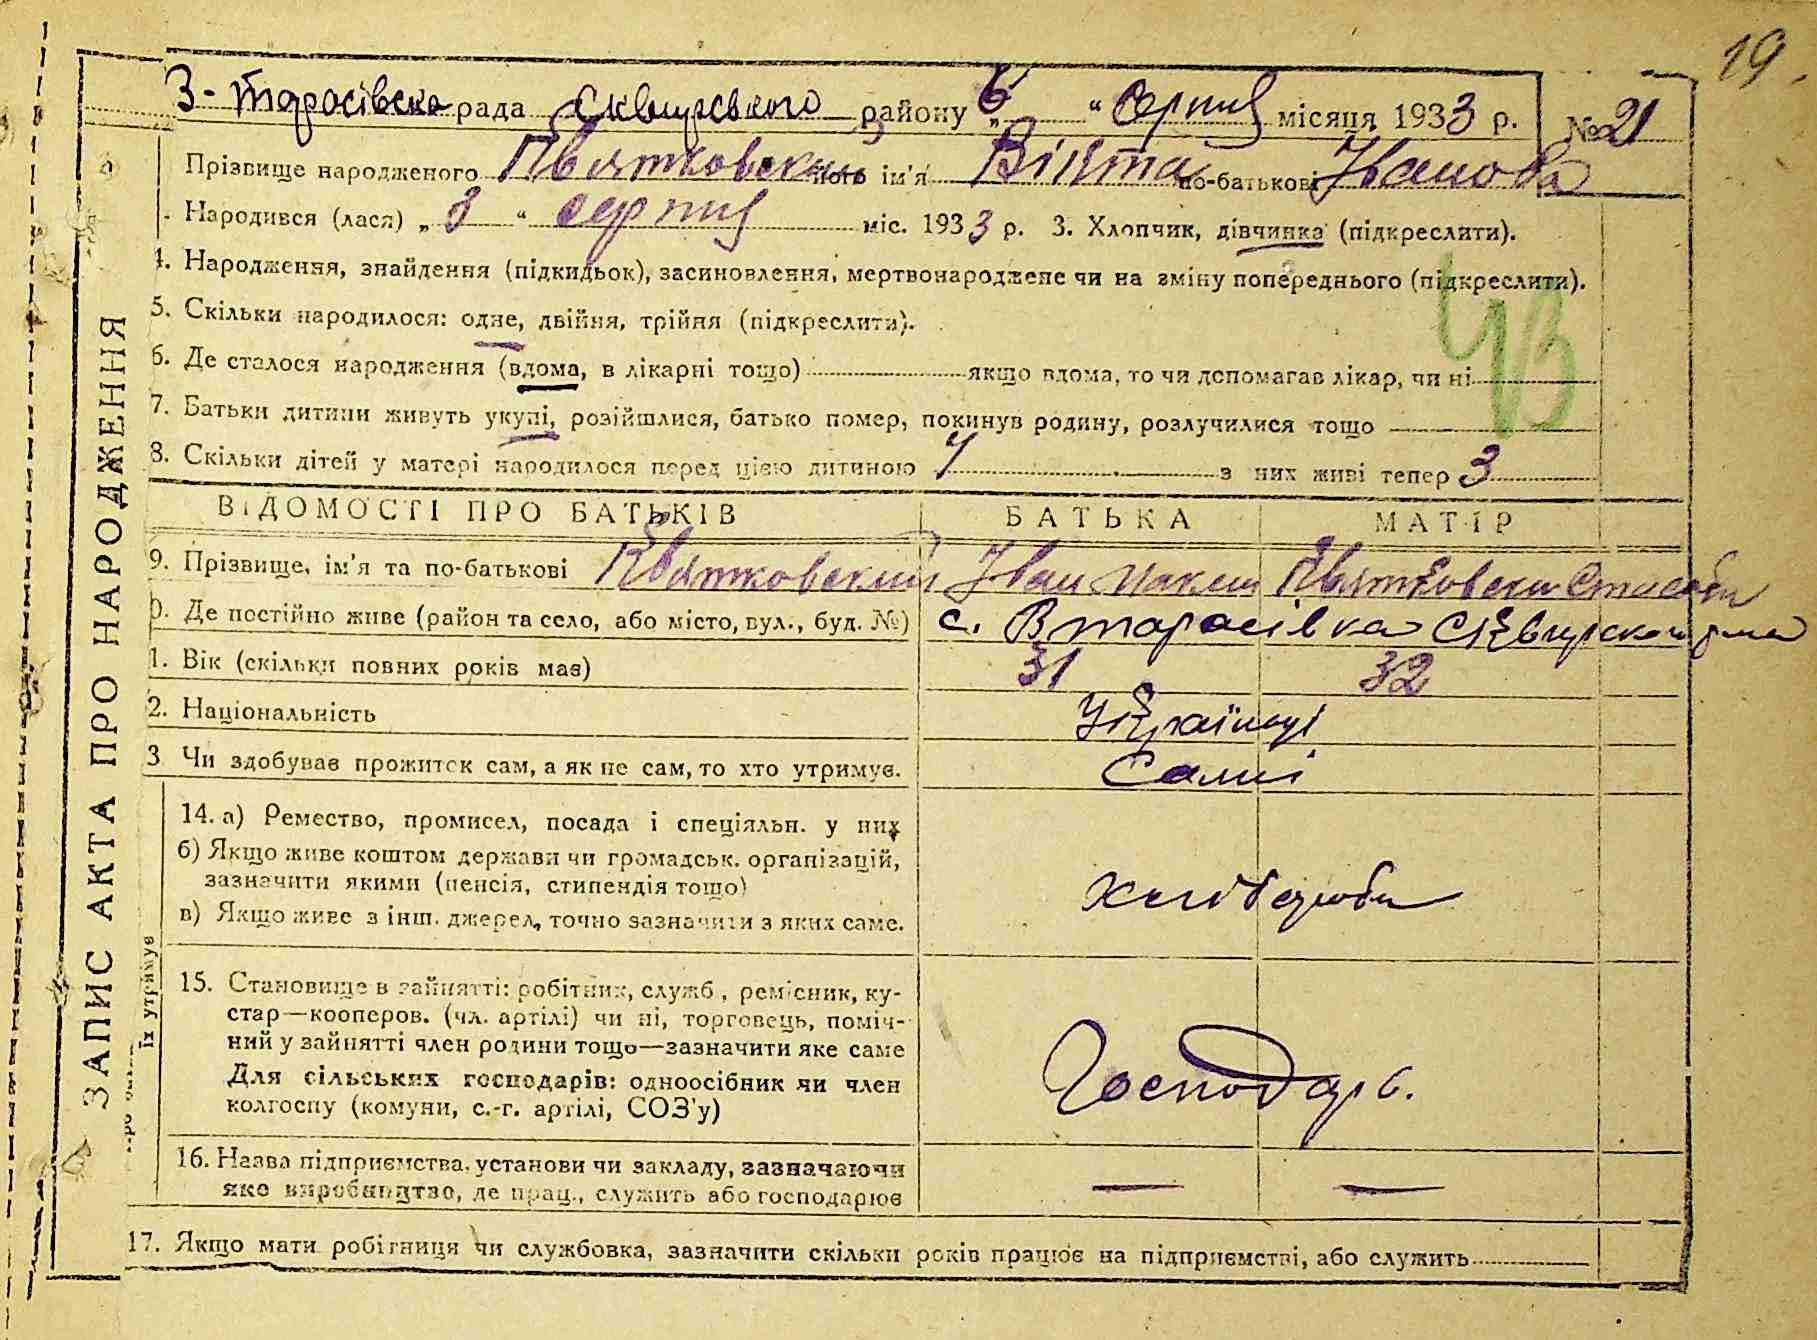 19.
З-Тарасівска рада Сквирського району „6“ Серпня місяця 1933 р. № 21
Прізвище народженого ім'я Віґта по-батькові Іванова
Народився (лася) „3“ серпня міс. 1933 р. 3. Хлопчик, дівчинка (підкреслити).
4. Народження, знайдення (підкидьок), засиновлення, мертвонароджене чи на зміну попереднього (підкреслити).
5. Скільки народилося: одне, двійня, трійня (підкреслити).
6. Де сталося народження (вдома, в лікарні тощо) якщо вдома, то чи допомагав лікар, чи ні
7. Батьки дитини живуть укупі, розійшлися, батько помер, покинув родину, розлучилися тощо
8. Скільки дітей у матері народилося перед цією дитиною 4 з них живі тепер 3
ЗАПИС АКТА ПРО НАРОДЖЕННЯ
ВІДОМОСТІ ПРО БАТЬКІВ БАТЬКА МАТІР
9. Прізвище, ім'я та по-батькові Квятковский Іван
0. Де постійно живе (район та село, або місто, вул., буд. №) с. В Тарасівка Сквирского р-на
1. Вік (скільки повних років має) 31 32
2. Національність Українці
3 Чи здобував прожиток сам, а як не сам, то хто утримує. Самі
їх утримує
14. а) Ремество, промисел, посада і спеціяльн. у них
б) Якщо живе коштом держави чи громадськ. організацій,
зазначити якими (пенсія, стипендія тощо) хліборобы
в) Якщо живе з інш. джерел, точно зазначити з яких саме.
15. Становище в зайнятті: робітник, служб., ремісник, ку-
стар—кооперов. (чл. артілі) чи ні, торговець, поміч-
ний у зайнятті член родини тощо—зазначити яке саме
Для сільських господарів: одноосібник чи член Господарь.
колгоспу (комуни, с.-г. артілі, СОЗ'у)
16. Назва підприємства, установи чи закладу, зазначаючи
яке виробництво, де прац., служить або господарює — —
17. Якщо мати робітниця чи службовка, зазначити скільки років працює на підприємстві, або служить